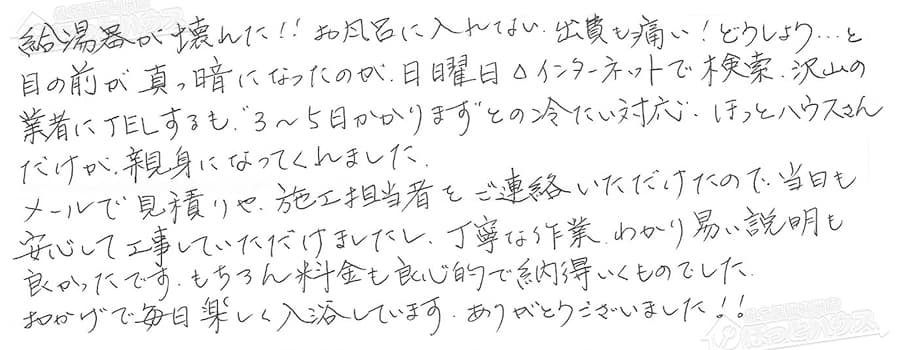 給湯器が壊れた!! お風呂に入れない、出費も痛い!どうしよう…と
目の前が真っ暗になったのが、日曜日△インターネットで検索、沢山の
業者にTELするも、"3〜5日かかります"との冷たい対応、ほっとハウスさん
だけが、親身になってくれました。
メールで見積りや、施工担当者をご連絡いただけたので、当日も
安心して工事していただけましたし、丁寧な作業、わかり易い説明も
良かったです。もちろん料金も良心的で納得いくものでした。
おかげで毎日楽しく入浴しています。ありがとうございました!!
ほっとハウス